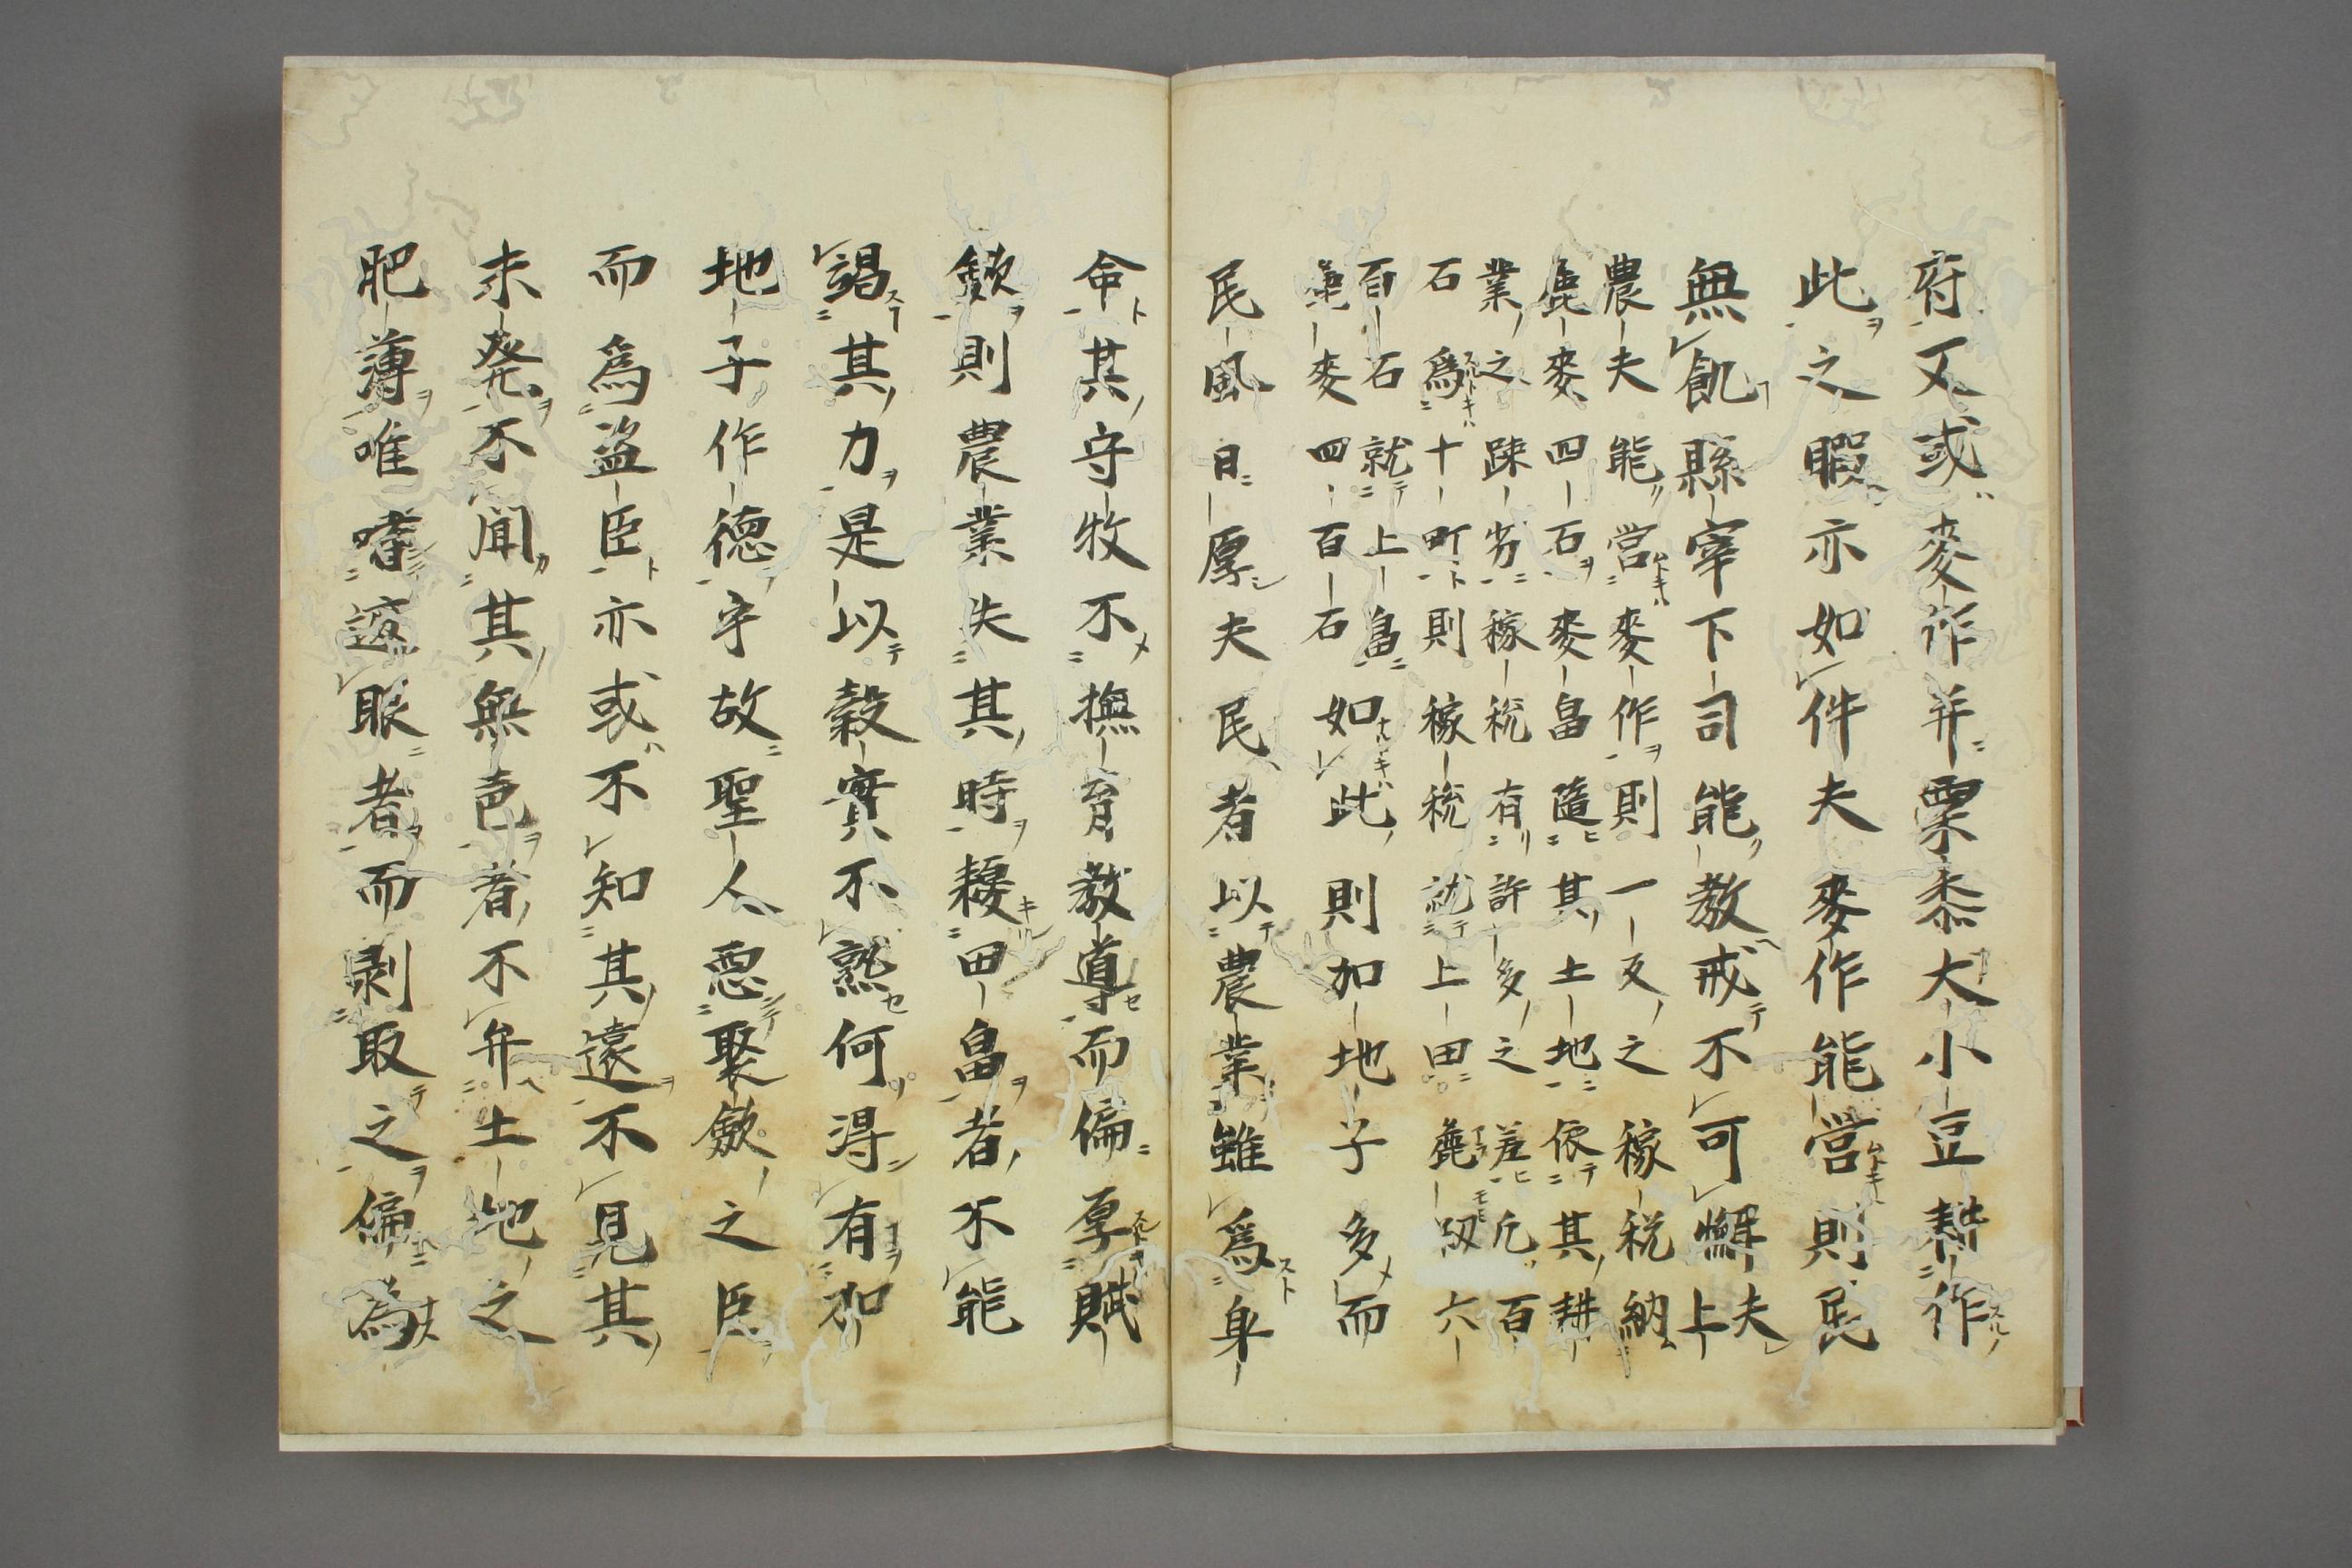 府又或麥作并粟黍大小豆耕作
此之暇亦如件夫麥作能営則民
無飢縣宰下司能教戒不可懈夫上
農夫能営麥作則一反之稼税納
麁麥四石麥畠随其土地依其耕
業之踈劣稼税有許多之差凡百
石為十町則稼税就上田麁籾六
百石就上畠
麁麥四百石
如此則加地子多而
民風日厚夫民者以農業雖為身
命其守牧不撫育教導而偏厚賦
歛則農業失其時耰田畠者不能
竭其力是以穀實不熟何得有和
地子作德乎故聖人悪聚歛之臣
而為盗臣亦或不知其遠不見其
未発不聞其無色者不弁土地之
肥薄唯嗜遮眼者而剥取之偏為